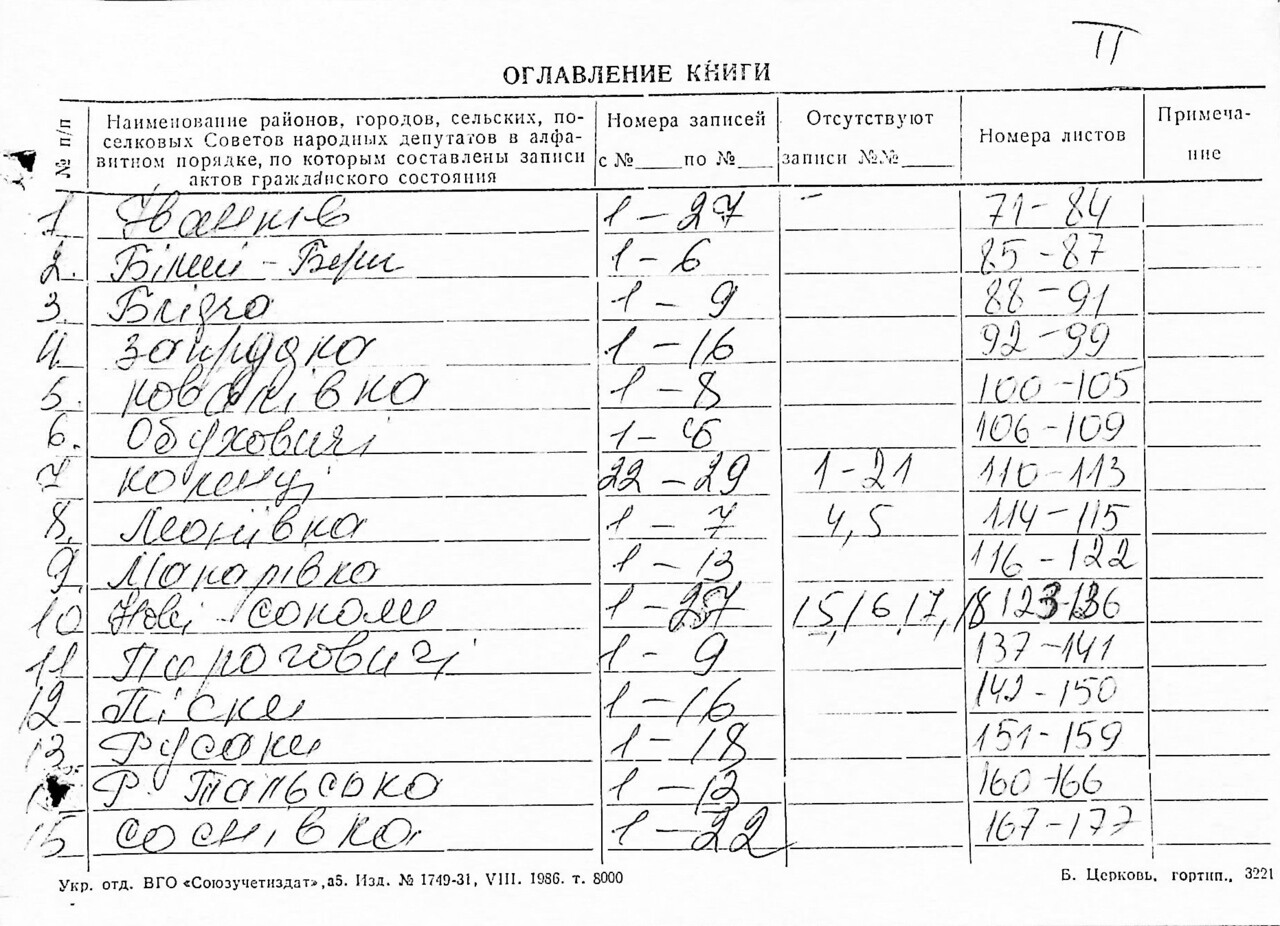 II
ОГЛАВЛЕНИЕ КНИГИ
№ п/п
Наименование районов, городов, сельских, по-
селковых Советов народных депутатов в алфа-
витном порядке, по которым составлены записи
актов гражданского состояния
Номера записей
с №____ по №____
Отсутствуют
записи №№____
Номера листов
Примеча-
ние
1. Іванків 1-27 - 71-84
2. Білий-Берег 1-6 85-87
3. Блідча 1-9 88-91
4. Запрудка 1-16 92-99
5. Ковалівка 1-8 100-105
6. Обуховичі 1-6 106-109
7 Коленці 22-29 1-21 110-113
8. Леонівка 1-7 4,5 114-115
9. Макарівка 1-13 116-122
10 Нові Соколи 1-27 15,16,17,18 123-136
11 Пироговичі 1-9 137-141
12 Піски 1-16 142-150
13. Русаки 1-18 151-159
Р. Тальська 1-13 160-166
15 Соснівка 1-22 167-177
Укр. отд. ВГО «Союзучетиздат», а5. Изд. № 1749-31, VIII. 1986. т. 8000
Б. Церковь, гортип., 3221